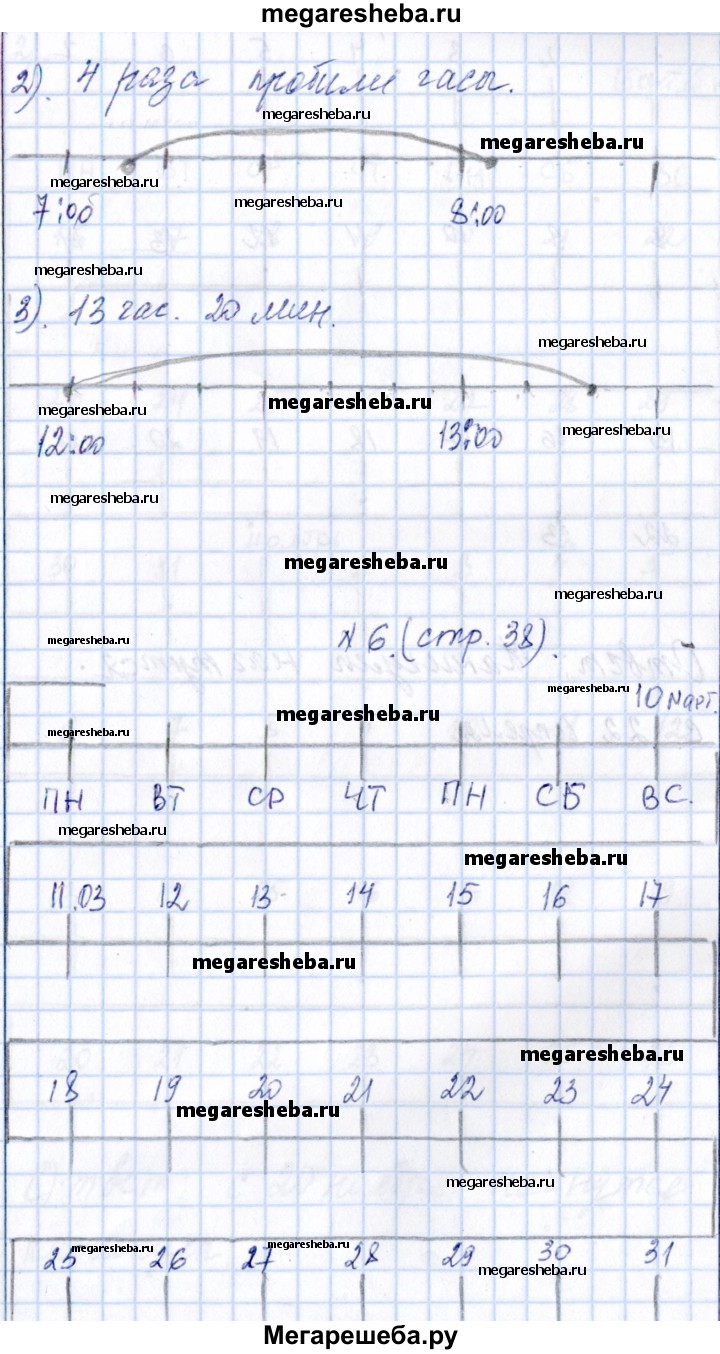 megaresheba.ru
2). 4 раза пробили часы.
megaresheba.ru
megaresheba.ru
megaresheba.ru
megaresheba.ru
7:00 8:00
megaresheba.ru
3). 13 час. 20 мин.
megaresheba.ru
megaresheba.ru
megaresheba.ru
megaresheba.ru
12:00 13:00
megaresheba.ru
megaresheba.ru
megaresheba.ru
megaresheba.ru
№ 6. (стр. 38).
megaresheba.ru
10 март.
megaresheba.ru
megaresheba.ru
ПН ВТ СР ЧТ ПН СБ ВС.
megaresheba.ru
megaresheba.ru
11.03 12 13 14 15 16 17
megaresheba.ru
megaresheba.ru
18 19 20 21 22 23 24
megaresheba.ru
megaresheba.ru
megaresheba.ru
megaresheba.ru
25 26 27 28 29 30 31
megaresheba.ru
Мегарешеба.ру